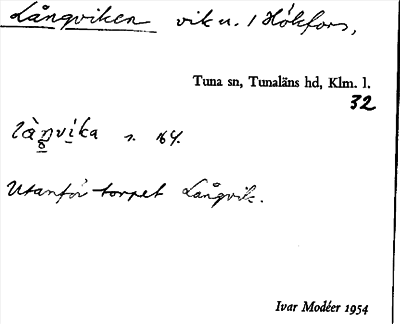 Långviken vik u. / Hökfors,
Tuna sn, Tunaläns hd, Klm. l.
32
s. 164.
Utanför torpet Långvik.
Ivar Modéer 1954